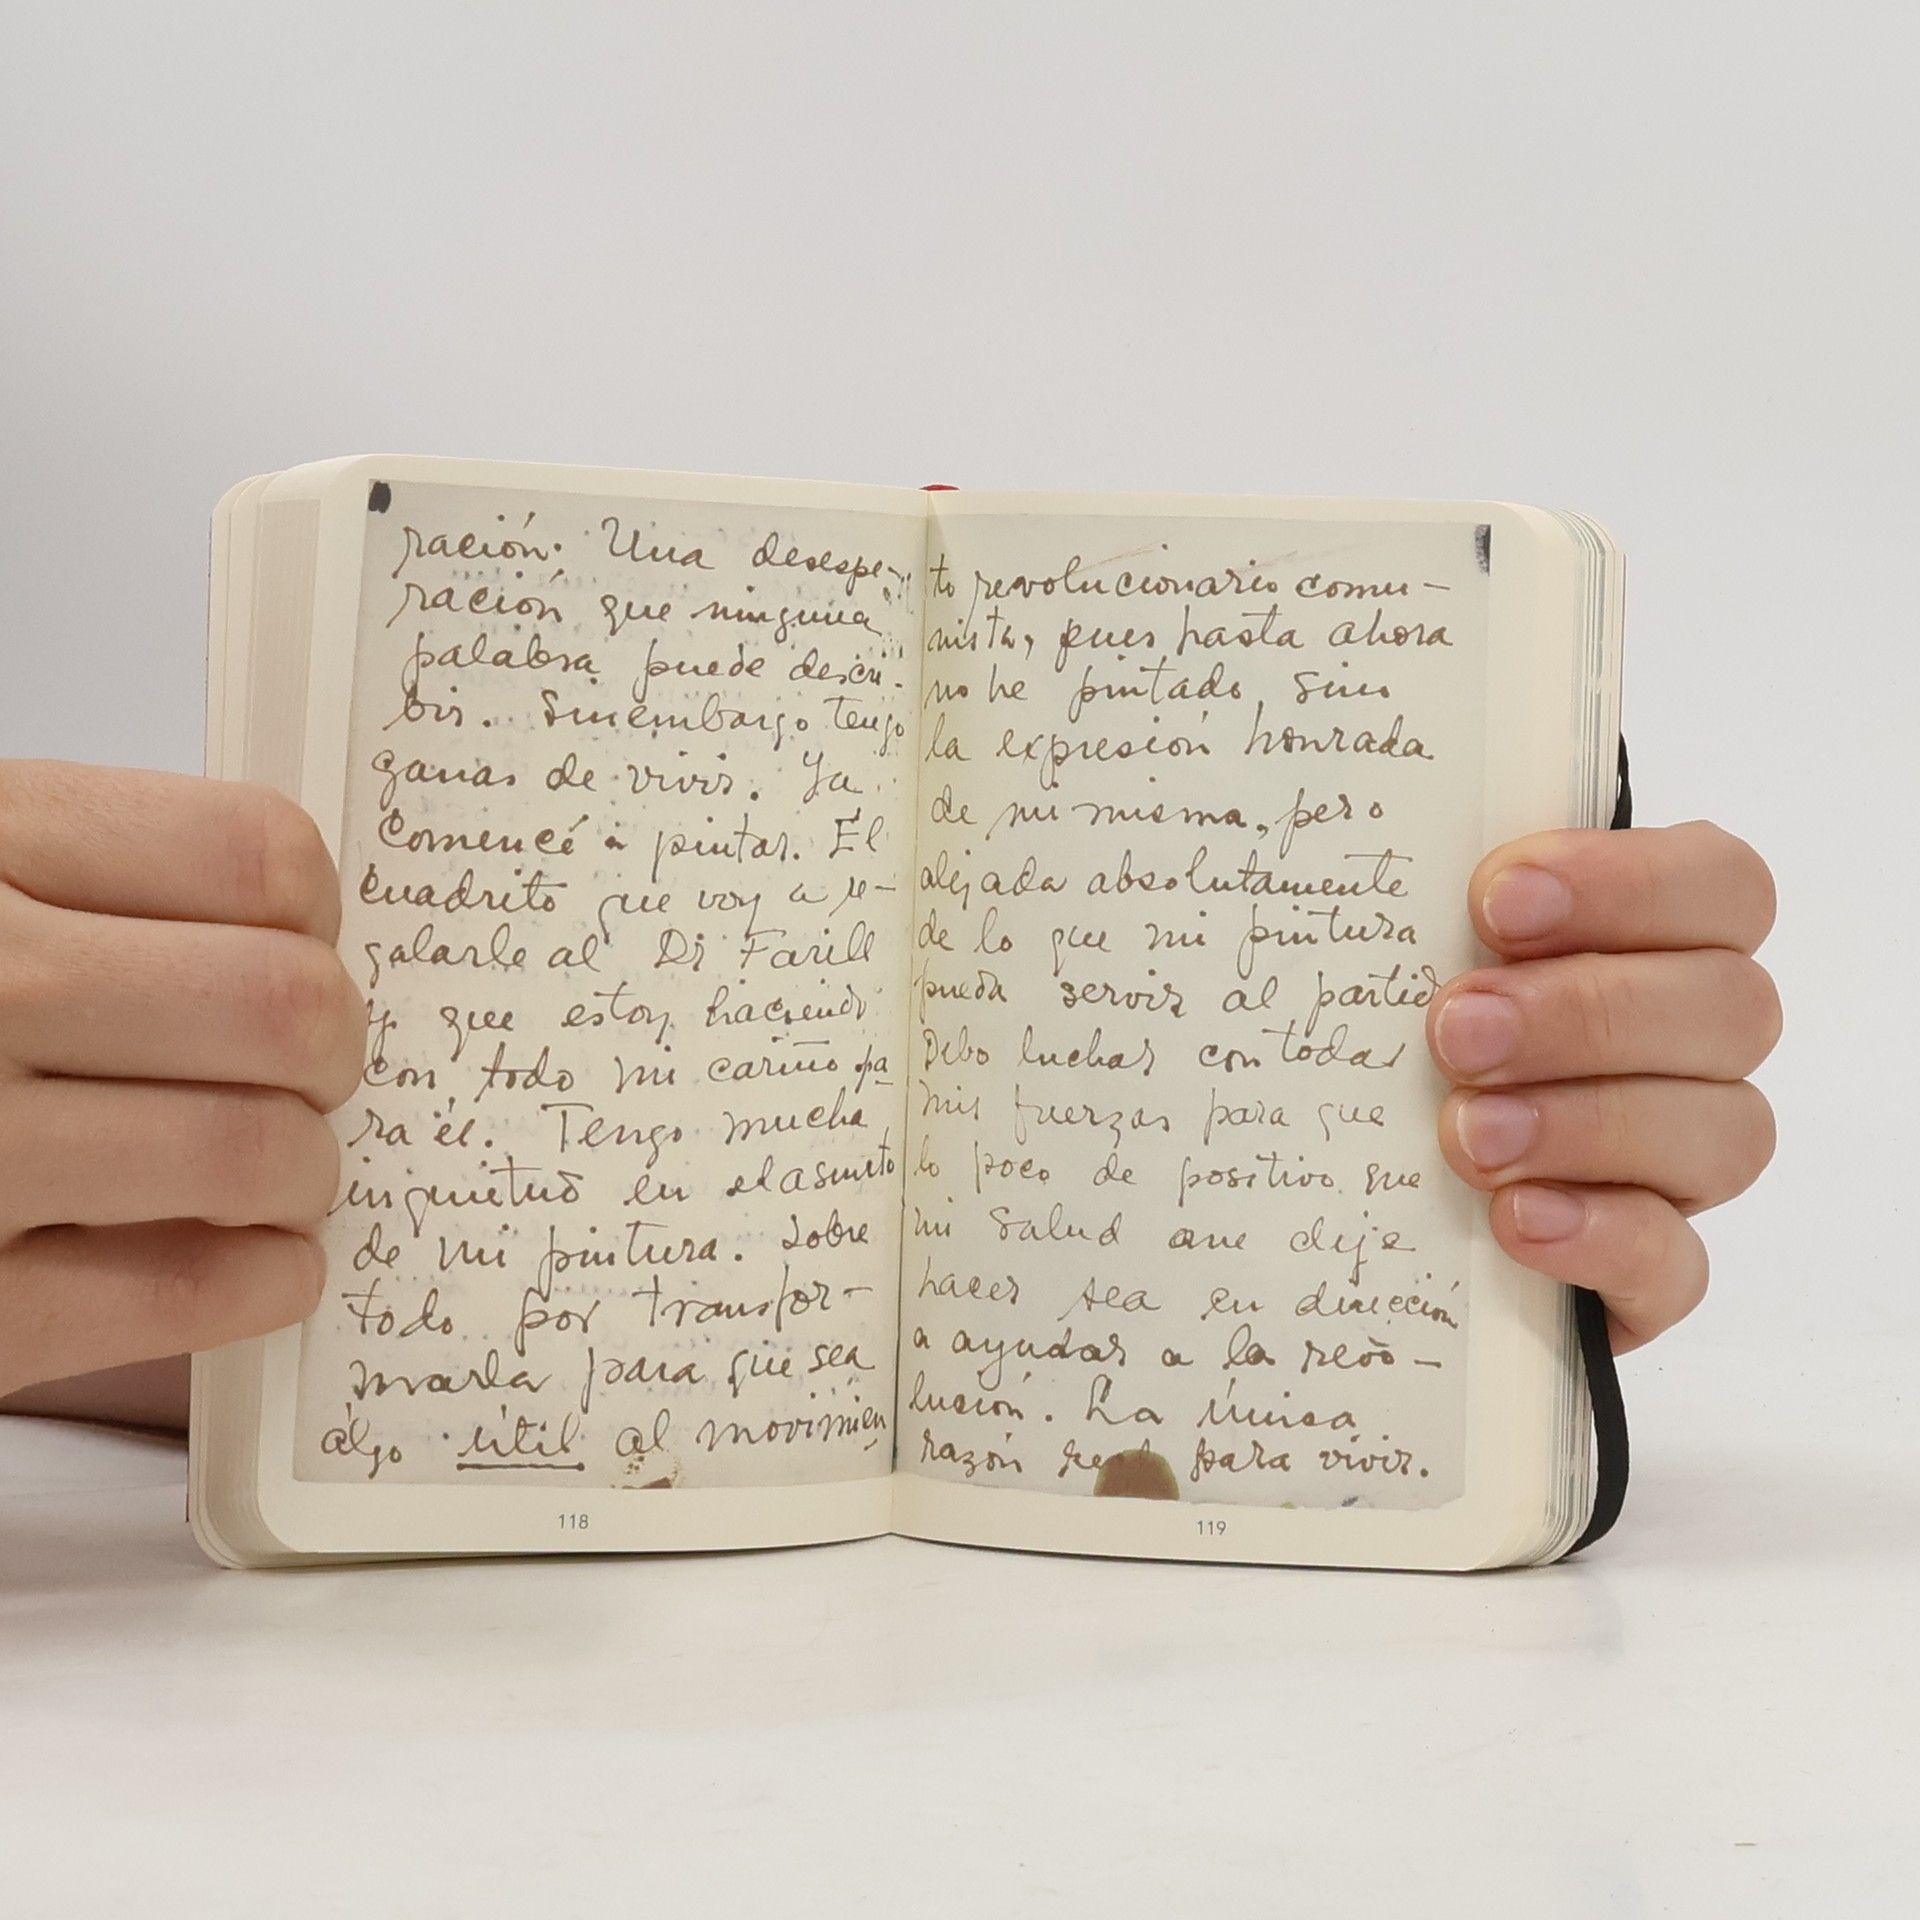 ración. Una desespe-
ración que ninguna
palabra puede descri-
bir. Sinembargo tengo
ganas de vivir. Ya
comencé a pintar. El
cuadrito que voy a re-
galarle al Dr Farill
y que estoy haciendo
con todo mi cariño pa
ra él. Tengo mucha
inquietud en el asunto
de mi pintura. Sobre
todo por transfor-
marla para que sea
algo útil al movimien
118
to revolucionario comu-
nista, pues hasta ahora
no he pintado sino
la expresión honrada
de mi misma, pero
alejada absolutamente
de lo que mi pintura
pueda servir al partid
Debo luchar con todas
mis fuerzas para que
lo poco de positivo que
mi salud me deje
hacer sea en dirección
a ayudar a la revo-
lución. La única
razón real para vivir.
119